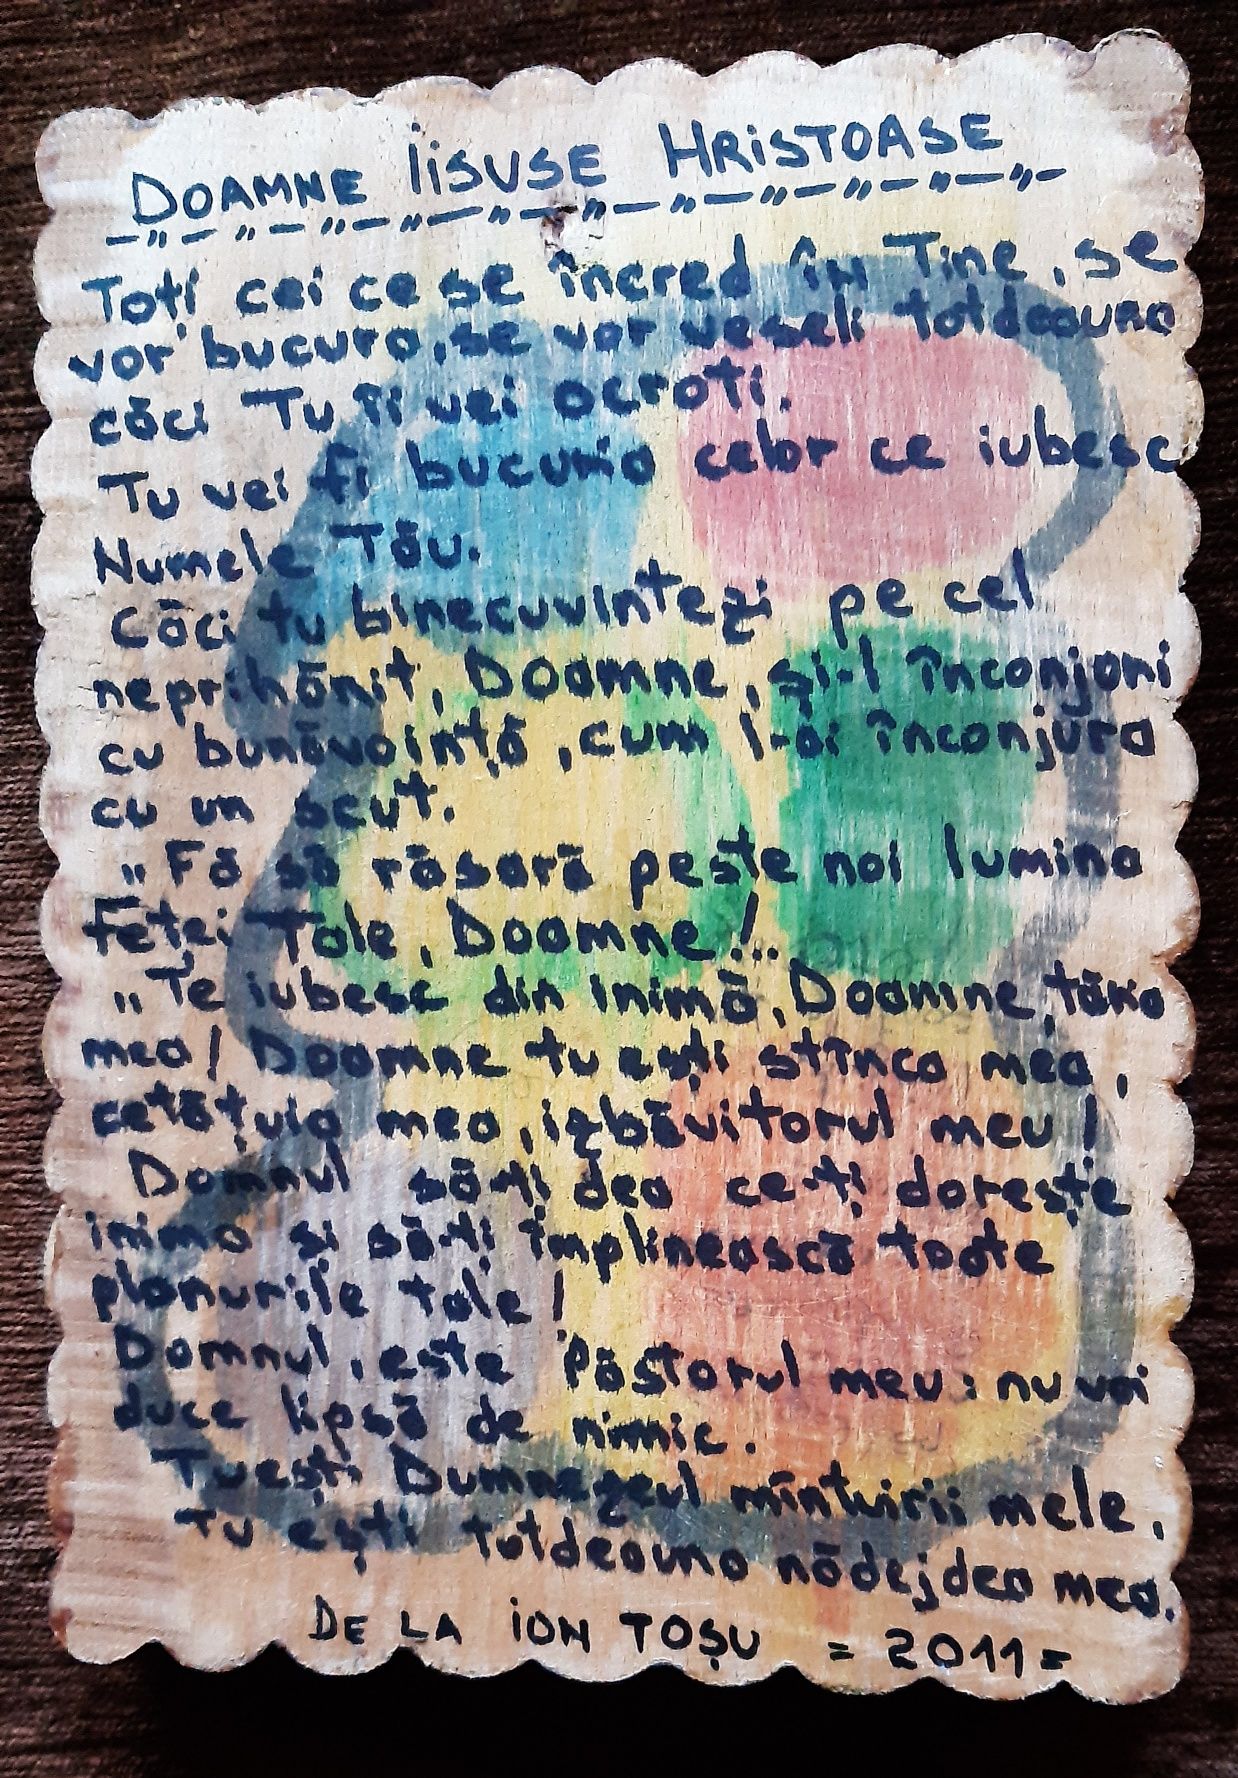 DOAMNE IISUSE HRISTOASE
Toți cei ce se încred în Tine, se
vor bucura, se vor veseli totdeauna
căci Tu îi vei ocroti.
Tu vei fi bucuria celor ce iubesc
Numele Tău.
Căci tu binecuvintezi pe cel
neprihănit, Doamne, și-l înconjori
cu bunăvoință, cum l-ai înconjura
cu un scut.
„Fă să răsară peste noi lumina
Feței Tale, Doamne!...
„Te iubesc din inimă, Doamne, tăria
mea! Doamne tu ești stînca mea,
cetățuia mea, izbăvitorul meu!
Domnul să-ți dea ce-ți dorește
inima si să-ți împlinească toate
planurile tale!
Domnul, este Păstorul meu: nu voi
duce lipsă de nimic.
Tu ești Dumnezeul mîntuirii mele,
Tu ești totdeauna nădejdea mea.
DE LA ION TOȘU = 2011=